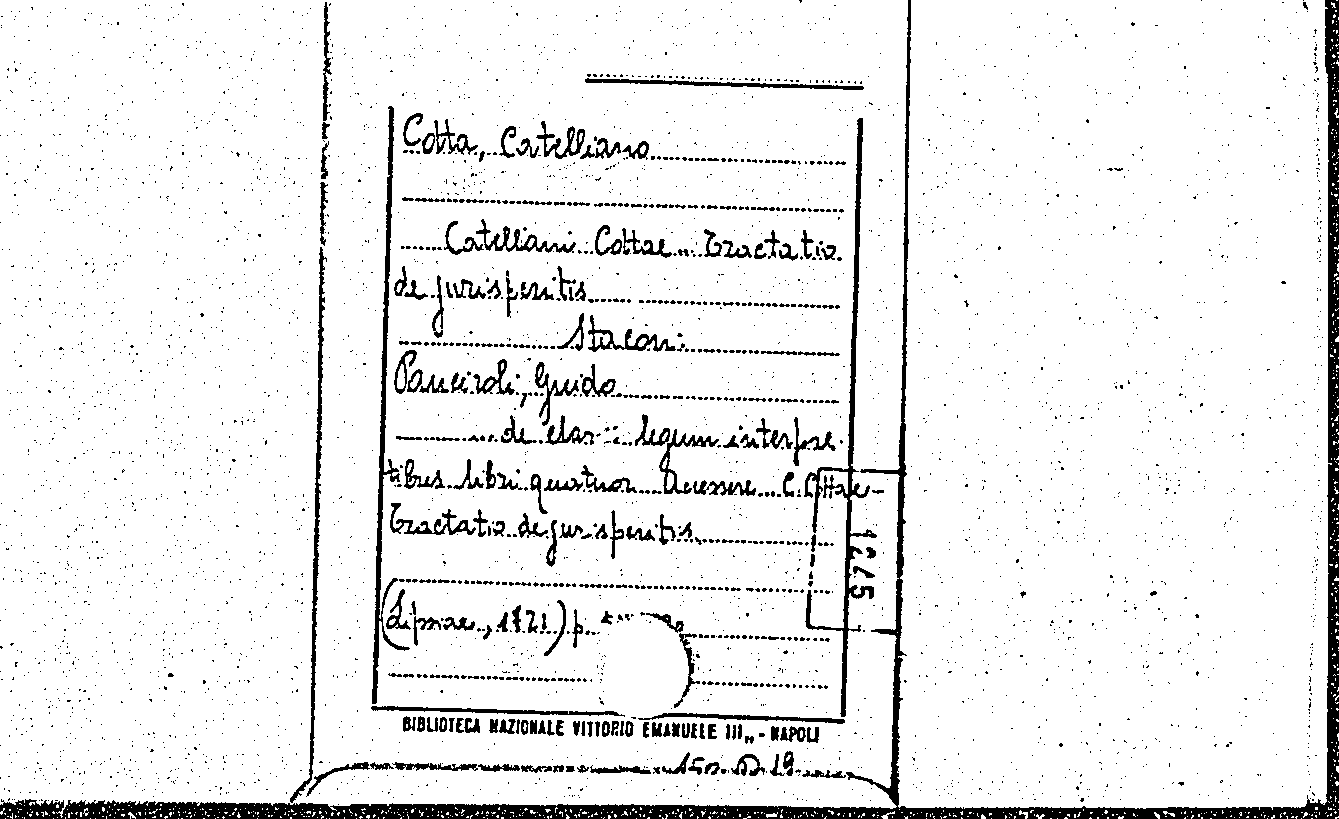 Cotta, Catelliano
Catelliani Cottae... Tractatio
de jurisperitis
Sta con:
Panciroli, Guido
... de clar:: legum interpre-
tibus libri quatuor Accessere... C. Cottae-
Tractatio de jurisperitis.
(Lipsiae, 1721) p.
1245
BIBLIOTECA NAZIONALE VITTORIO EMANUELE III„ - NAPOLI